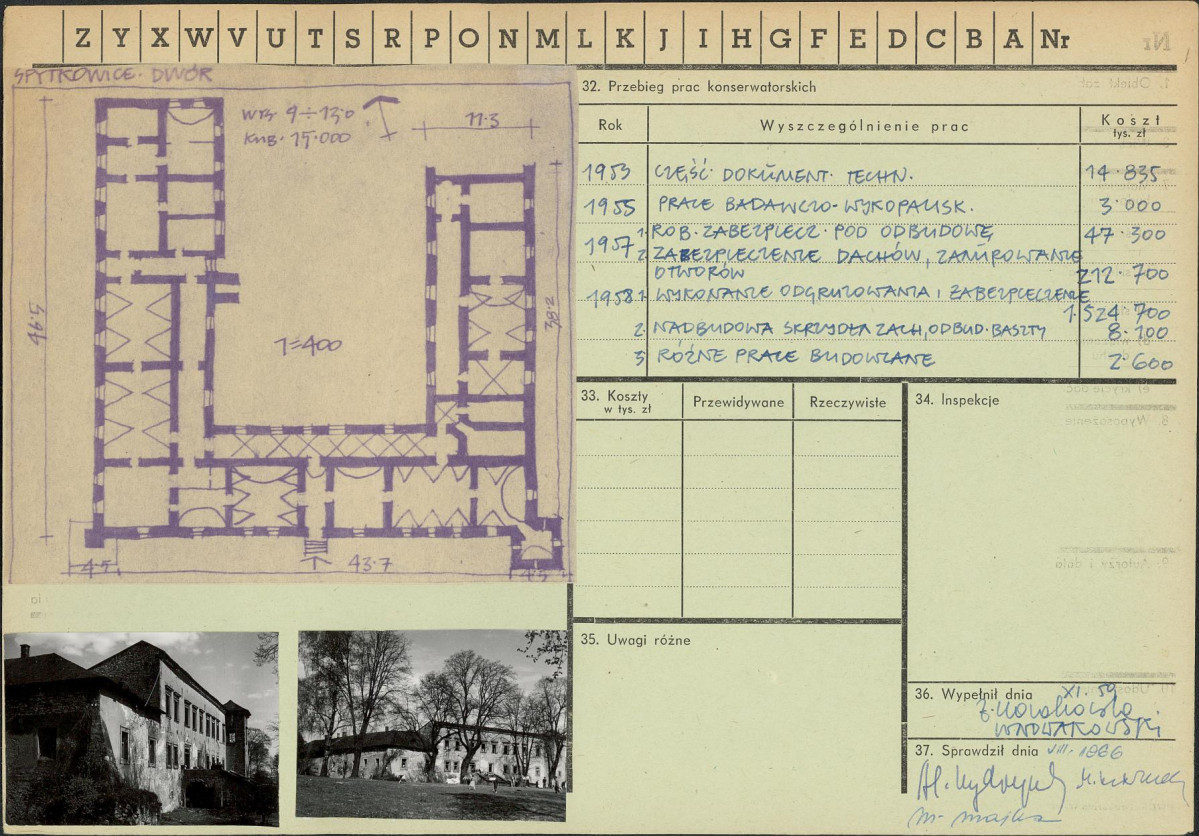 Z Y X W V U T S R P O N M L K J I H G F E D C B A Nr
SPYTKOWICE. DWÓR
WYS. 9÷13.0
KUB. 15.000
11.3
46.5
38.2
1=400
4.5
43.7
4.5
32. Przebieg prac konserwatorskich
Rok Wyszczególnienie prac Koszt
tys. zł
1953 CZĘŚĆ DOKUMENT. TECHN. 14.835
1955 PRACE BADAWCZO-WYKOPALISK. 3.000
1957 1. ROB. ZABEZPIECZ. POD ODBUDOWĘ 47.300
2. ZABEZPIECZENIE DACHÓW, ZAMUROWANIE
OTWORÓW 212.700
1958 1. WYKONANIE ODGRUZOWANIA I ZABEZPIECZENIE
1.524.700
2. NADBUDOWA SKRZYDŁA ZACH, ODBUD. BASZTY 8.100
3 RÓŻNE PRACE BUDOWLANE 2.600
33. Koszty
w tys. zł
Przewidywane Rzeczywiste
34. Inspekcje
35. Uwagi różne
36. Wypełnił dnia XI. 59
W NOWAKOWSKI
37. Sprawdził dnia VIII. 1966